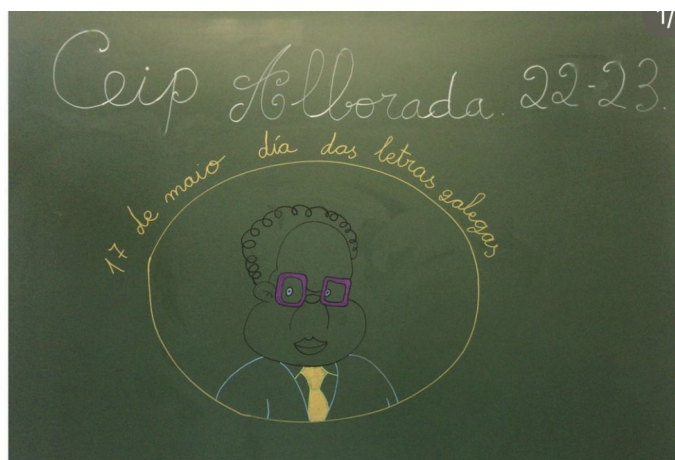 1/
Ceip Alborada. 22-23.
17 de maio día das letras galegas